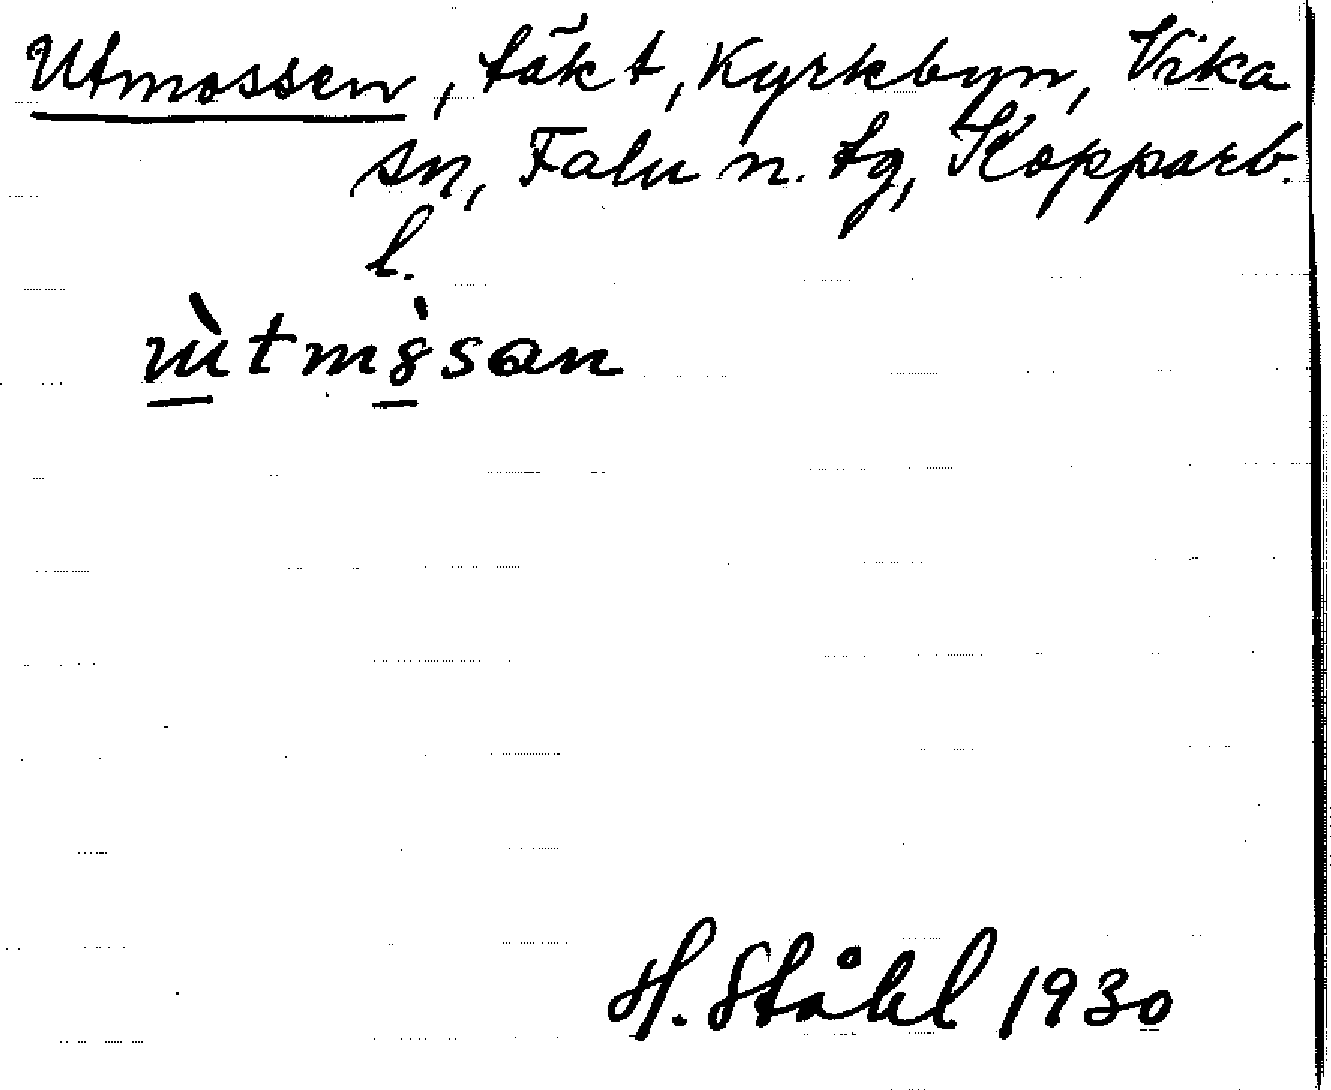 Utmossen, täkt, Kyrkbyn, Vika
sn, Falu n. tg, Kopparb.
l.
H. Ståhl 1930